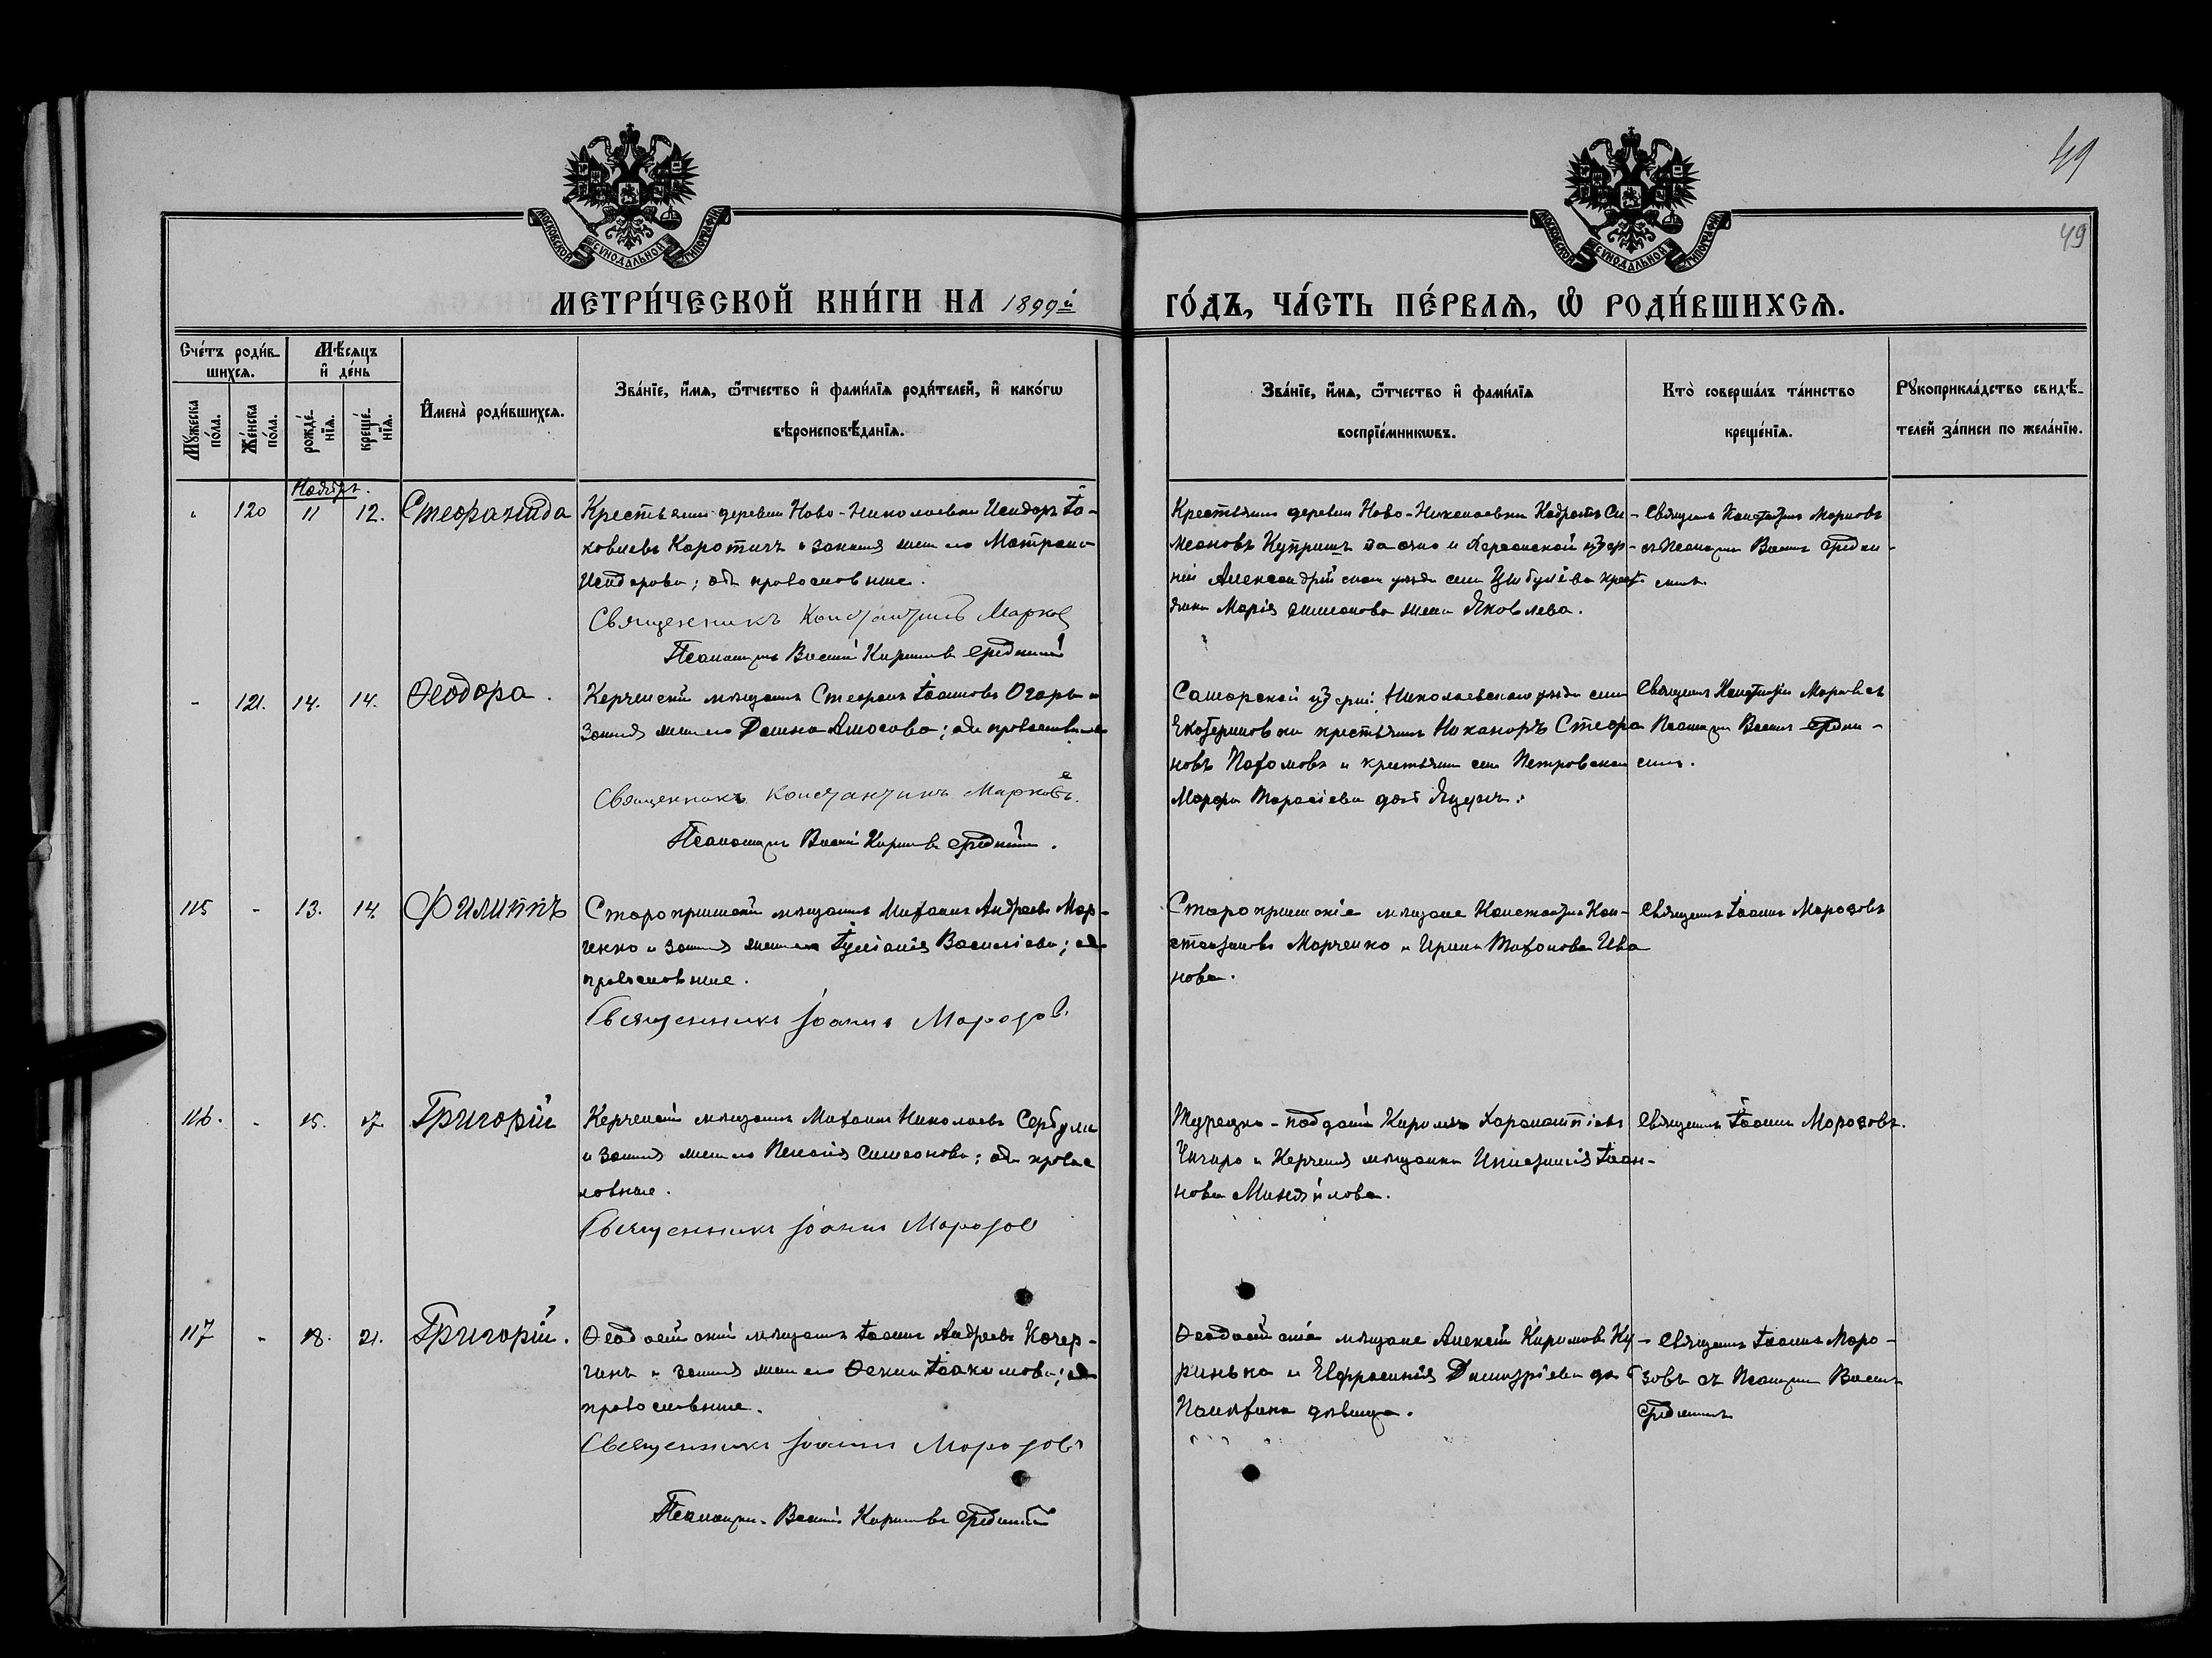 49
49
МОСКОВСКОЙ СѴНОДАЛЬНОЙ ТИПОГРАФІИ
МОСКОВСКОЙ СѴНОДАЛЬНОЙ ТИПОГРАФІИ
МЕТРИ́ЧЕСКОЙ КНИ́ГИ НА 1899й
ГО́ДЪ, ЧА́СТЬ ПЕ́РВАЯ, Ѡ РОДИ́ВШИХСЯ.
Сче́тъ роди́в-
шихся.
Мѣ́сяцъ
и де́нь
Мꙋ́жеска
по́ла.
Же́нска
по́ла.
рожде́-
нїя.
креще́-
нїя.
И҆мена̀ роди́вшихся.
Зва́нїе, и҆́мя, ѻ҆́тчество и҆ фами́лїя роди́телей, и҆ како́гѡ
вѣроисповѣ́данїя.
Зва́нїе, и҆́мя, ѻ҆́тчество и҆ фами́лїя
воспрїе́мникѡвъ.
Кто̀ соверша́лъ та́инство
креще́нїя.
Рꙋкоприкла́дство свидѣ́-
телей за́писи по жела́нїю.
Ноябрь.
120 11 12. Стефанида
Крестьянинъ деревни Ново-Николаевки Исидоръ Іа-
ковлевъ Коротичъ и законная жена его Матрона
Исидорова; оба православные.
Священникъ Константинъ Марковъ
Псаломщикъ Василій Кириловъ Средин
Крестьянинъ деревни Ново-Николаевки Кодратъ Си-
меоновъ Купришъ заочно и Херсонской губер-
ніи Александрійскаго уѣзда села Цыбулёва крест-
янка Марія Симеонова жена Яковлева.
Священникъ Константинъ Марковъ
съ Псаломщ. Василіемъ Средин-
скимъ.
121. 14. 14. Ѳеодора.
Керченскій мѣщанинъ Стефанъ Іоанновъ Огарь и
законная жена его Домна Амосова; оба православные
Священникъ Константинъ Марковъ.
Псаломщикъ Василій Кириловъ Средин
Самарской губерніи Николаевскаго уѣзда села
Екатериновки крестьянинъ Никаноръ Стефа
новъ Пахомовъ и крестьянка села Петровскаго
Марфа Тарасіева дочь
Священникъ Константинъ Марковъ съ
Псаломщ. Василіемъ Средин-
скимъ.
115 - 13. 14. Филиппъ
Старокрымскій мѣщанинъ Михаилъ Андреевъ Мар-
ченко и законная жена его Іуліанія Васильева; оба
православные.
Священникъ Іоаннъ Морозовъ
Старокрымскіе мѣщане Константинъ Кон-
стантиновъ Марченко и Ирина Тихонова Ива
нова.
Священникъ Іоаннъ Морозовъ
116. - 15. 17 Григорій
Керченскій мѣщанинъ Михаилъ Николаевъ Сербули
и законная жена его Пелагія Симеонова; оба право
славные.
Священникъ Іоаннъ Морозовъ
Турецко-подданный Кирилъ Харалампіевъ
и Керченская мѣщанка Іоан-
нова
Священникъ Іоаннъ Морозовъ.
117 - 18. 21. Григорій.
Ѳеодосійскій мѣщанинъ Іоаннъ Андреевъ Кочер-
гинъ и законная жена его Ѳекла Іоакимова; оба
православные.
Священникъ Іоаннъ Морозовъ
Псаломщикъ Василій Кириловъ Средин
Ѳеодосійскіе мѣщане Алексѣй Кириловъ Ку-
ринько и Евфросинія Димитріева дочь
дѣвица.
Священникъ Іоаннъ Моро-
зовъ съ Псаломщ. Василіемъ
Срединскимъ